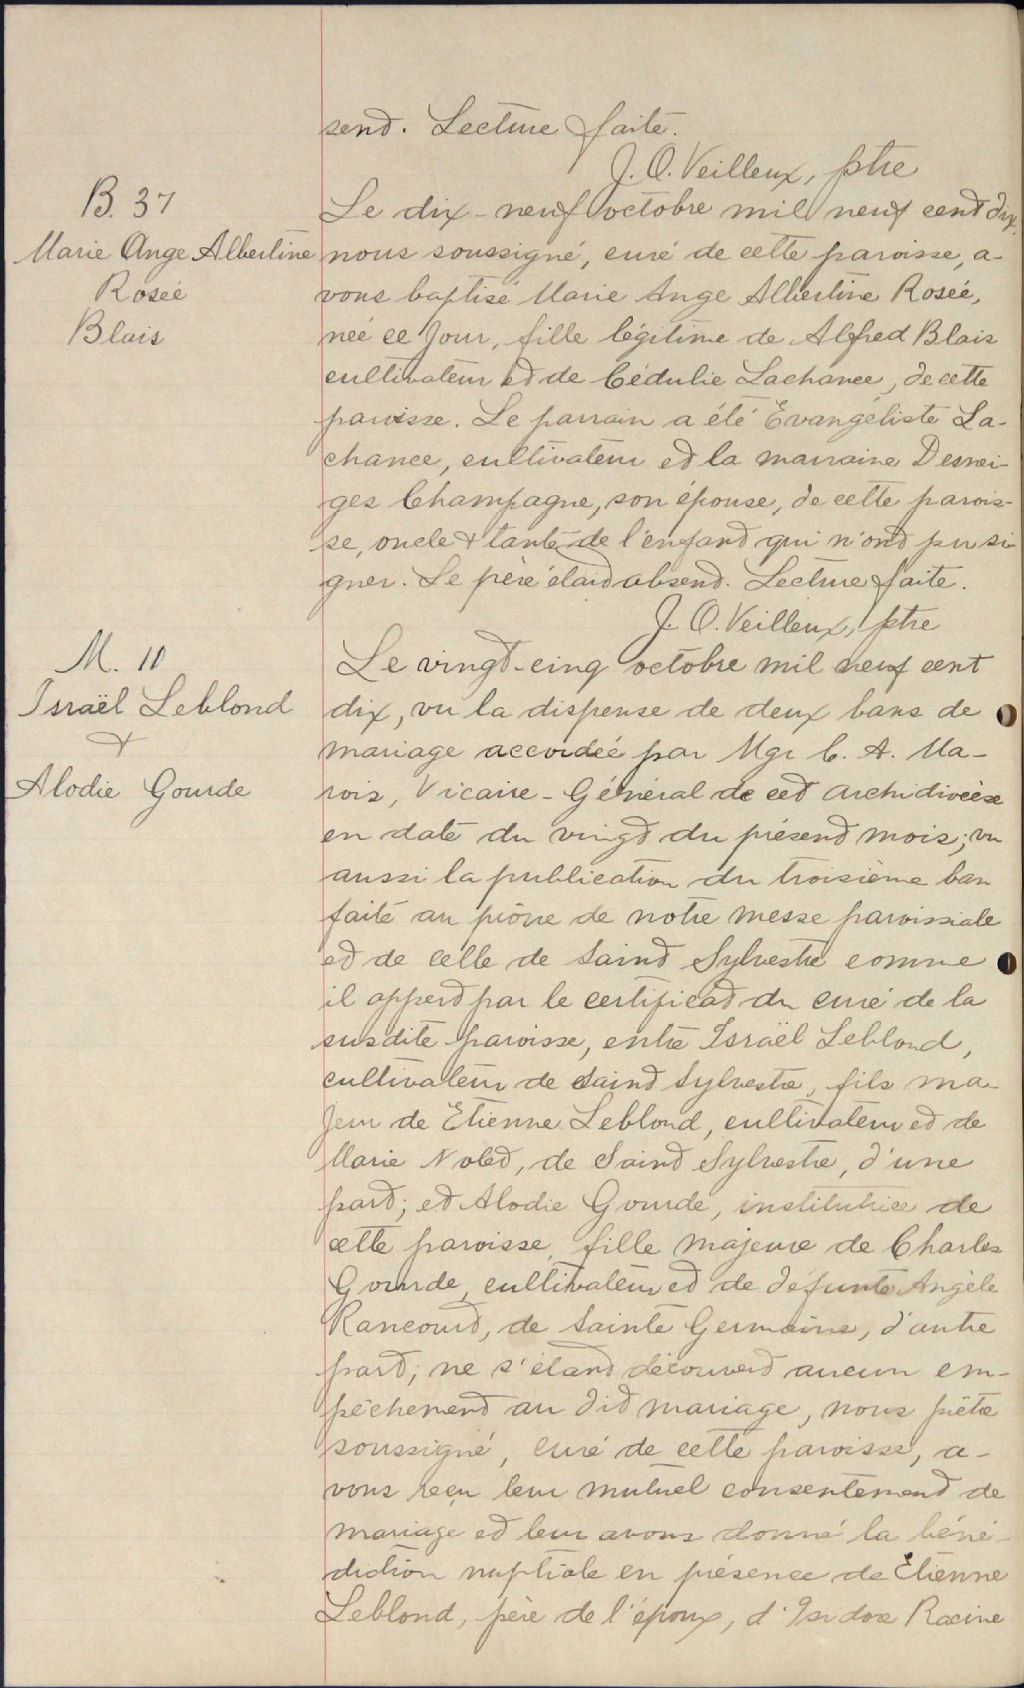 sent. Lecture faite.
J. O. Veilleux, ptre
B. 37
Marie Ange Albertine
Roseé
Blais
Le dix-neuf octobre mil neuf cent dix,
nous soussigné, curé de cette paroisse, a-
vons baptisé Marie Ange Albertine Roseé,
neé ce jour, fille légitime de Alfred Blais
cultivateur et de Cédulie Lachance, de cette
paroisse. Le parrain a été Evangéliste La-
chance, cultivateur et la marraine Desnei-
ges Champagne, son épouse, de cette parois-
se, oncle & tante de l'enfant qui n'ont pu si-
gner. Le père était absent. Lecture faite.
J. O. Veilleux, ptre
M. 10
Israël Leblond
&
Alodie Gourde
Le vingt-cinq octobre mil neuf cent
dix, vu la dispense de deux bans de
mariage accordeé par Mgr C. A. Ma-
rois, Vicaire-Général de cet archidiocèse
en date du vingt du présent mois; vu
aussi la publication du troisième ban
faite au prône de notre messe paroissiale
et de celle de Saint Sylvestre comme
il appert par le certificat du curé de la
susdite paroisse, entre Israël Leblond,
cultivateur de Saint Sylvestre, fils ma-
jeur de Etienne Leblond, cultivateur et de
Marie Nolet, de Saint Sylvestre, d'une
part; et Alodie Gourde, institutrice de
cette paroisse, fille majeure de Charles
Gourde, cultivateur et de défunte Angèle
Rancourt, de Sainte Germaine, d'autre
part; ne s'étant découvert aucun em-
pêchement au dit mariage, nous prêtre
soussigné, curé de cette paroisse, a-
vons reçu leur mutuel consentement de
mariage et leur avons donné la béné-
diction nuptiale en présence de Etienne
Leblond, père de l'époux, d'Isidore Racine